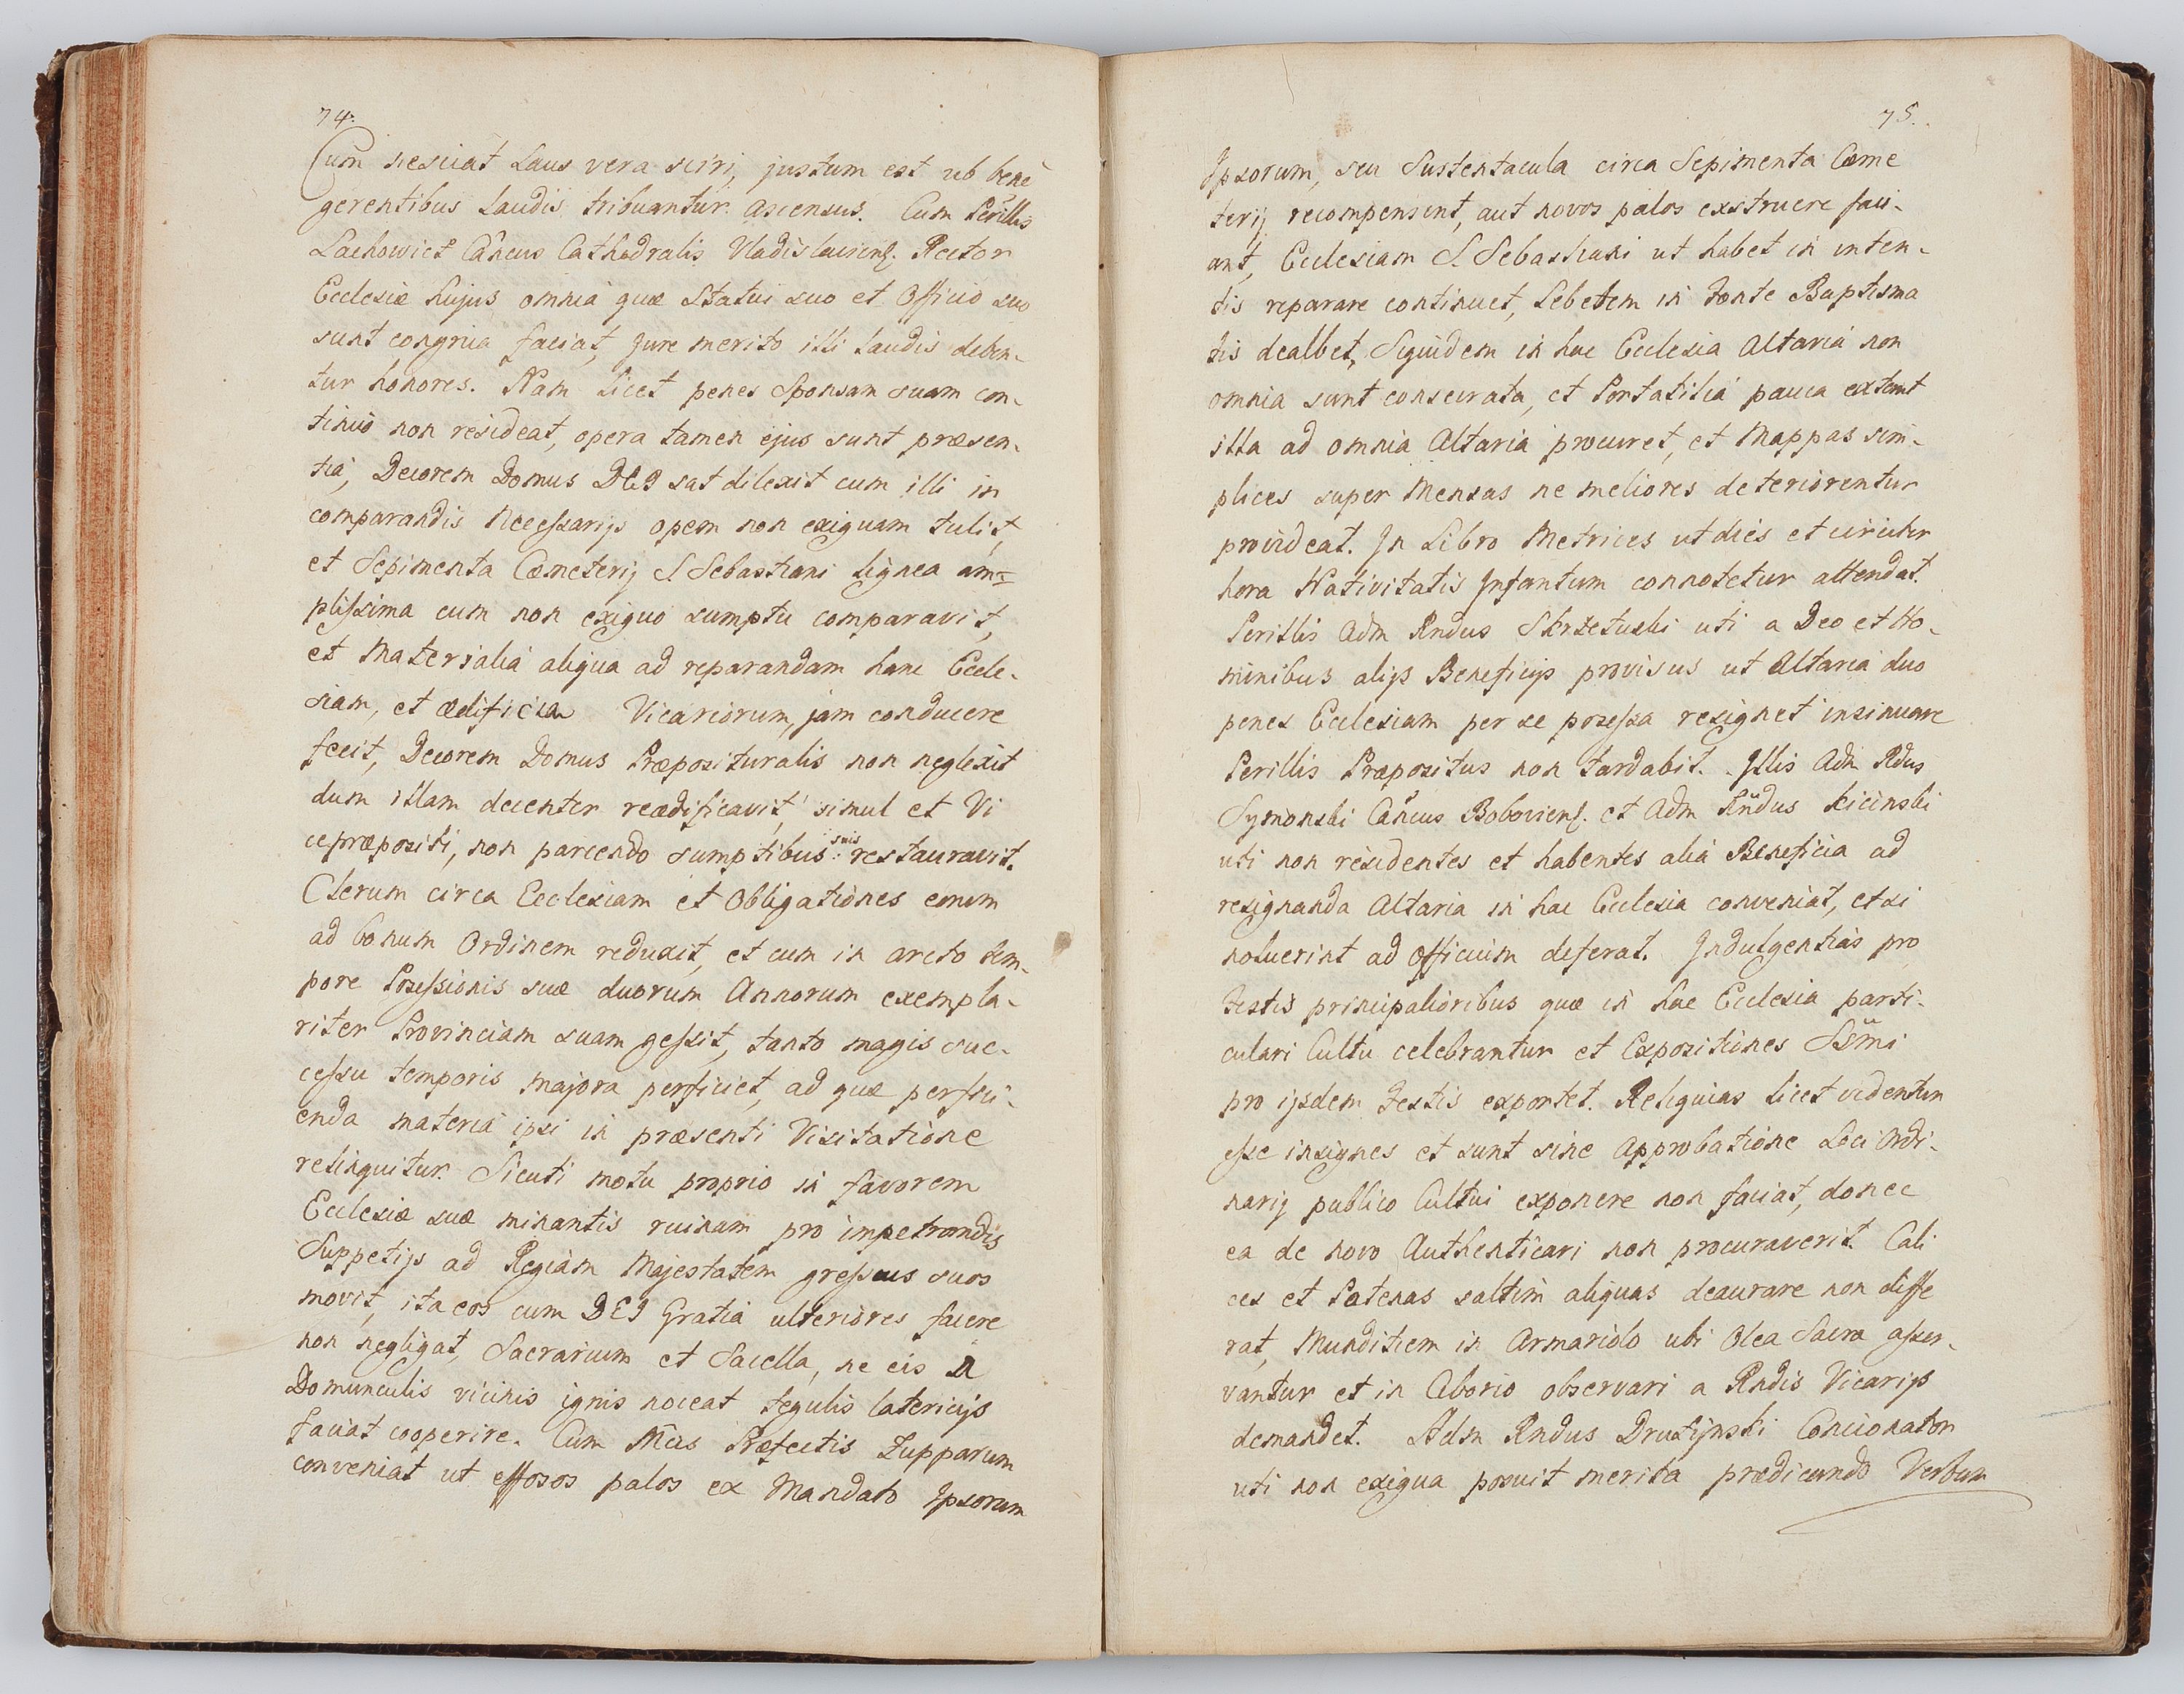 74.
Cum nesciat Laus vera sciri, justum est ut bene
gerentibus Laudis tribuantur ascensus. Cum Perillis
Lachowicz Cancus Cathedralis Vladislaviens. Rector
Ecclesiæ hujus omnia quæ Statui suo et Officio suo
sunt congrua faciat, Jure merito illi Laudis deben-
tur honores. Nam licet penes Sponsam suam con-
tinuo non resideat, opera tamen ejus sunt præsen-
tia, Decorem Domus DEI sat dilexit cum illi in
comparandis Necessarijs opem non exiguam tulit,
et Sepimenta Cœmeterij S Sebastiani Lignea am=
plissima cum non exiguo sumptu comparavit,
et Materialia aliqua ad reparandam hanc Eccle-
siam, et ædificia Vicariorum, jam conducere
fecit, Decorem Domus Præposituralis non neglexit
dum illam decenter reædificavit, simul et Vi
cepræpositi, non parcendo sumptibus suis restauravit.
Clerum circa Ecclesiam et Obligationes eorum
ad bonum Ordinem reduxit, et cum in arcto tem-
pore Possessionis suæ duorum Annorum exempla-
riter Provinciam suam gessit, tanto magis suc-
cessu temporis majora perficiet, ad quæ perfici-
enda materia ipsi in præsenti Visitatione
relinquitur. Sicuti motu proprio in favorem
Ecclesiæ suæ minantis ruinam pro impetrandis
Suppetijs ad Regiam Majestatem gressus suos
movit, ita eos cum DEI Gratia ulteriores facere
non negligat, Sacrarium et Sacella, ne eis a
Domunculis vicinis ignis noceat tegulis latericijs
faciat cooperire. Cum Mcis Præfectis Zupparum
conveniat ut effosos palos ex Mandato Ipsorum
75.
Ipsorum, seu Sustentacula circa Sepimenta Cœme
terij recompensent, aut novos palos exstruere faci-
ant, Ecclesiam S. Sebastiani ut habet in inten-
tis reparare continuet, Lebetem in Fonte Baptisma
tis dealbet, Siquidem in hac Ecclesia Altaria non
omnia sunt consecrata, et Portatilia pauca extant
illa ad omnia Altaria procuret, et Mappas sim-
plices super Mensas ne meliores deteriorentur
provideat. In Libro Metrices ut dies et circiter
hora Nativitatis Infantum connotetur attendat.
Perillis Adm Rndus Skrzetuski uti a Deo et Ho-
minibus alijs Beneficijs provisus ut Altaria duo
penes Ecclesiam per se possessa resignet insinuare
Perillis Præpositus non tardabit. Illis Adm Rdus
Symonski Cancus Boboviens. et Adm Rndus Kicinski
uti non residentes et habentes alia Beneficia ad
resignanda Altaria in hac Ecclesia conveniat, et si
noluerint ad Officium deferat. Indulgentias pro
Festis principalioribus quæ in hac Ecclesia parti-
culari Cultu celebrantur et Expositiones SSmi
pro ijsdem Festis exportet. Reliquias licet videntur
esse insignes et sunt sine Approbatione Loci Ordi-
narij publico Cultui exponere non faciat, donec
ea de novo Authenticari non procuraverit. Cali
ces et Patenas saltim aliquas deaurare non diffe
rat, Munditiem in Armariolo ubi Olea Sacra asser-
vantur et in Ciborio observari a Rndis Vicarijs
demandet. Adm Rndus Drużyński Concionator
uti non exigua posuit merita prædicando Verbum